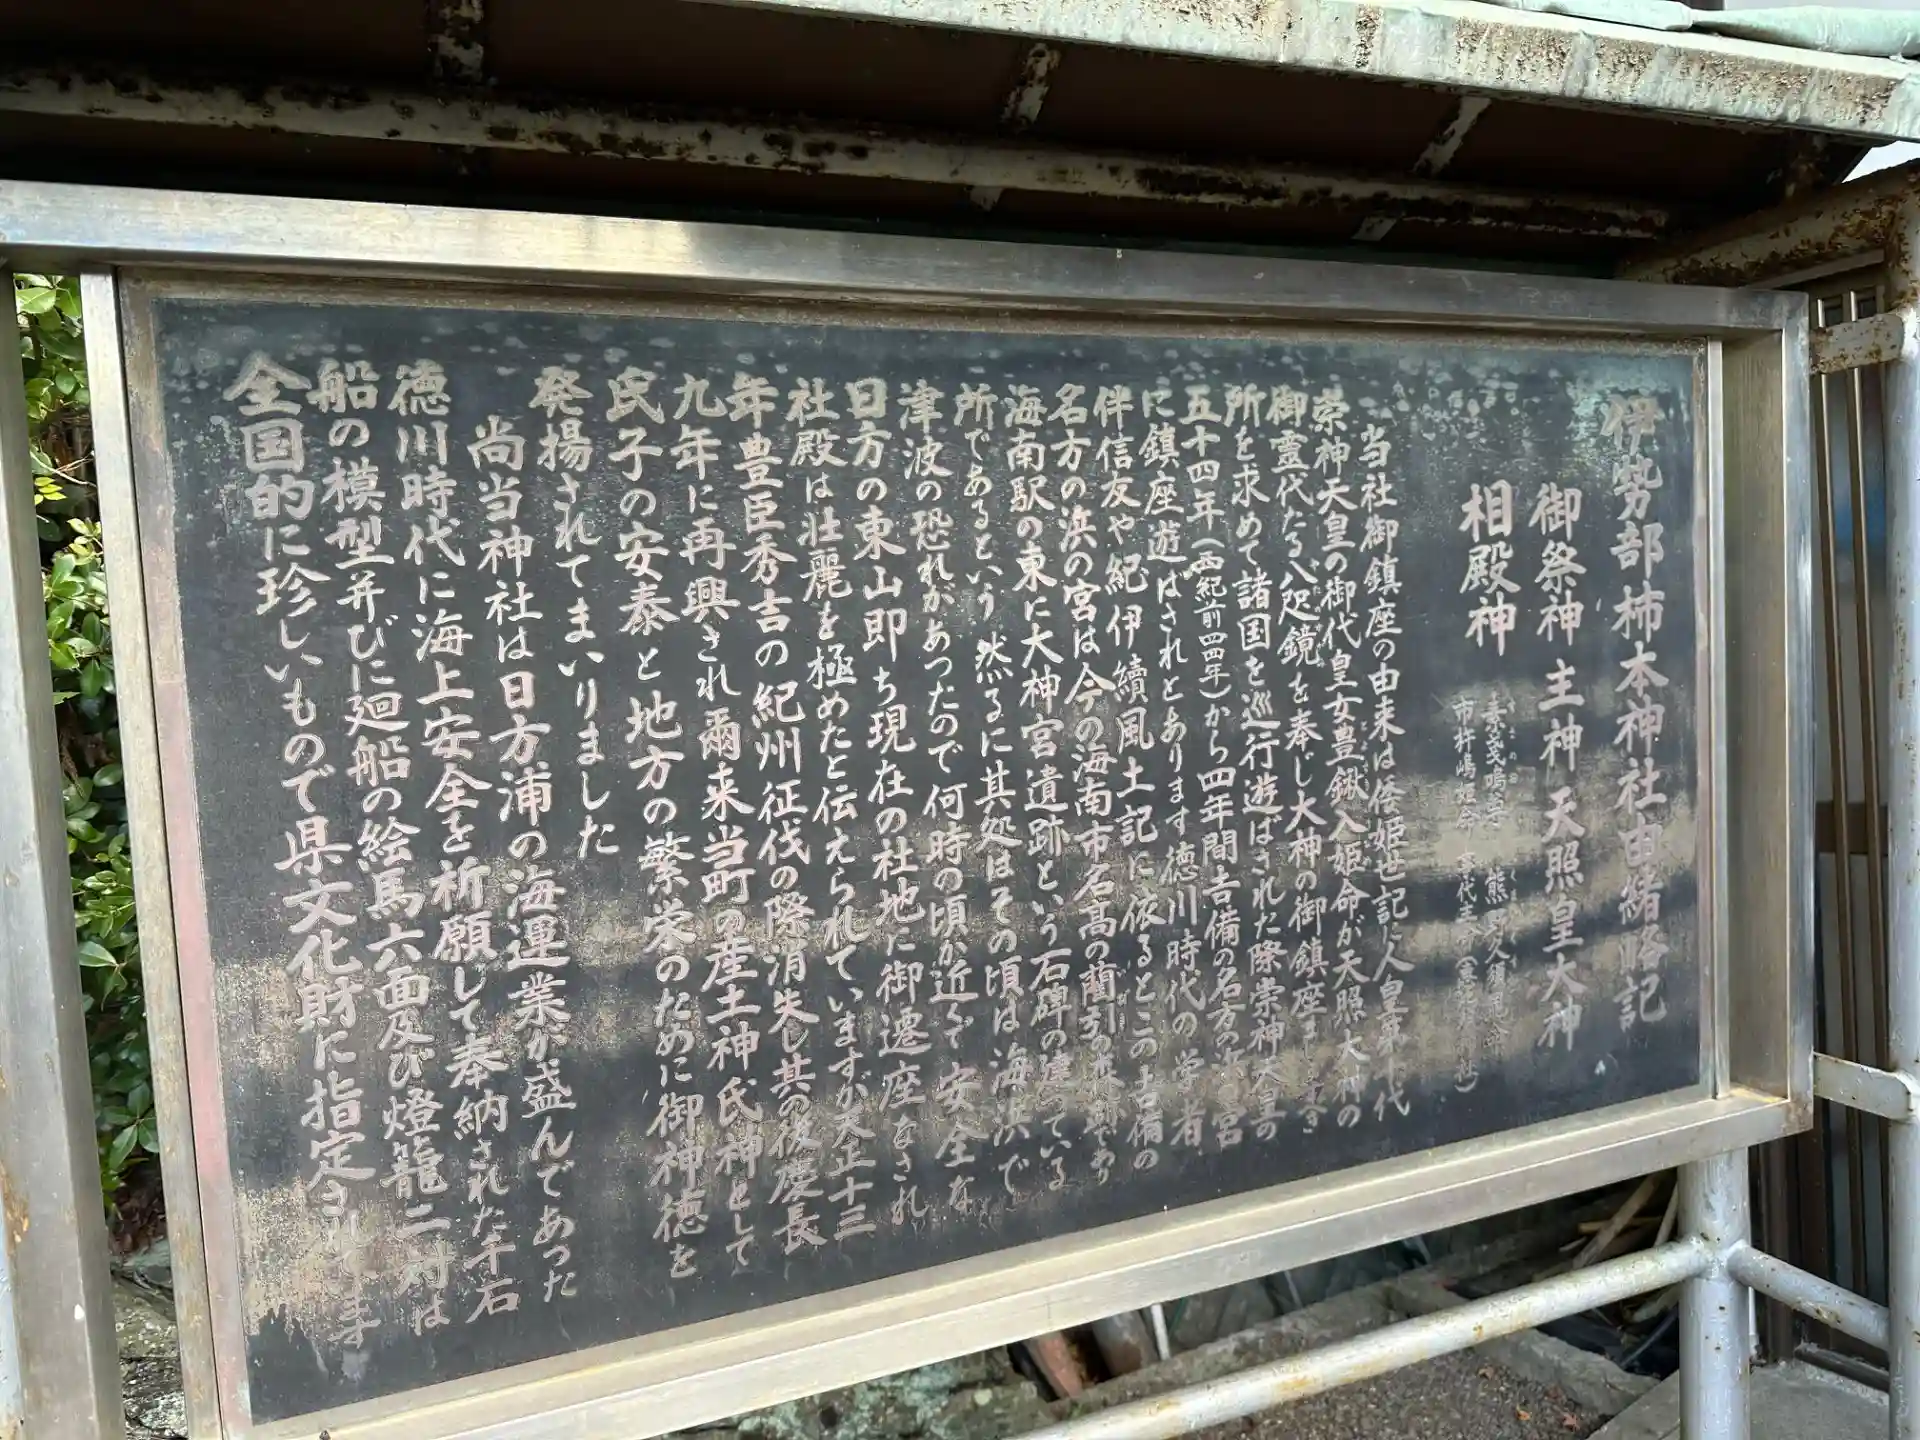 伊勢部柿本神社由緒略記
御祭神 主神 天照皇大神
相殿神
市杵嶋姫命
当社御鎮座の由来は倭姫世記に人皇第十代
崇神天皇の御代皇女豊鍬入姫命が天照大神の
御霊代たる八咫鏡を奉じ大神の御鎮座ましますき
所を求めて諸国を巡行遊ばされた際崇神天皇の
五十四年(西紀前四四年)から四年間吉備の名方の浜の宮
に鎮座遊ばされとあります徳川時代の学者
伴信友や紀伊續風土記に依るとこの吉備の
名方の浜の宮は今の海南市名高の藺引の森跡であり
海南駅の東に大神宮遺跡という石碑の建っている
所であるという 然るに其処はその頃は海浜で
津波の恐れがあつたので何時の頃か近くで安全な
日方の東山即ち現在の社地に御遷座なされ
社殿は壮麗を極めたと伝えられていますが天正十三
年豊臣秀吉の紀州征伐の際消失し其の後慶長
九年に再興され爾来当町の産土神氏神として
氏子の安泰と地方の繁栄のために御神徳を
発揚されてまいりました
尚当神社は日方浦の海運業が盛んであった
徳川時代に海上安全を祈願して奉納された千石
船の模型并びに廻船の絵馬六面及び燈籠二対は
全国的に珍しいもので県文化財に指定されてます